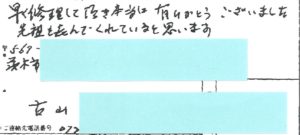 早く修理して頂き本当に有りがとうございました
先祖も喜んでくれていると思います
〒567-
茨木市
古山
ご連絡先電話番号 072